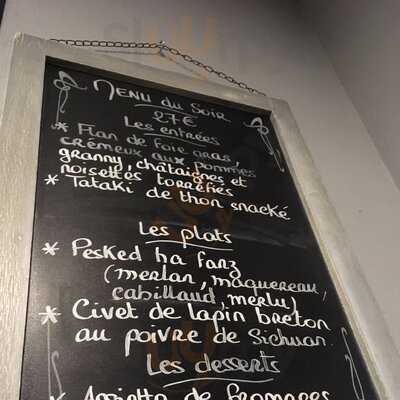 Menu du Soir
27€
Les entrées
* Flan de foie gras,
crémeux aux pommes
granny, châtaignes et
noisettes torréfiés
* Tataki de thon snacké
Les plats
* Pesked ha farz
(merlan, maquereau,
cabillaud, merlu)
* Civet de lapin breton
au poivre de Sichuan.
Les desserts
* Assiette de fromages